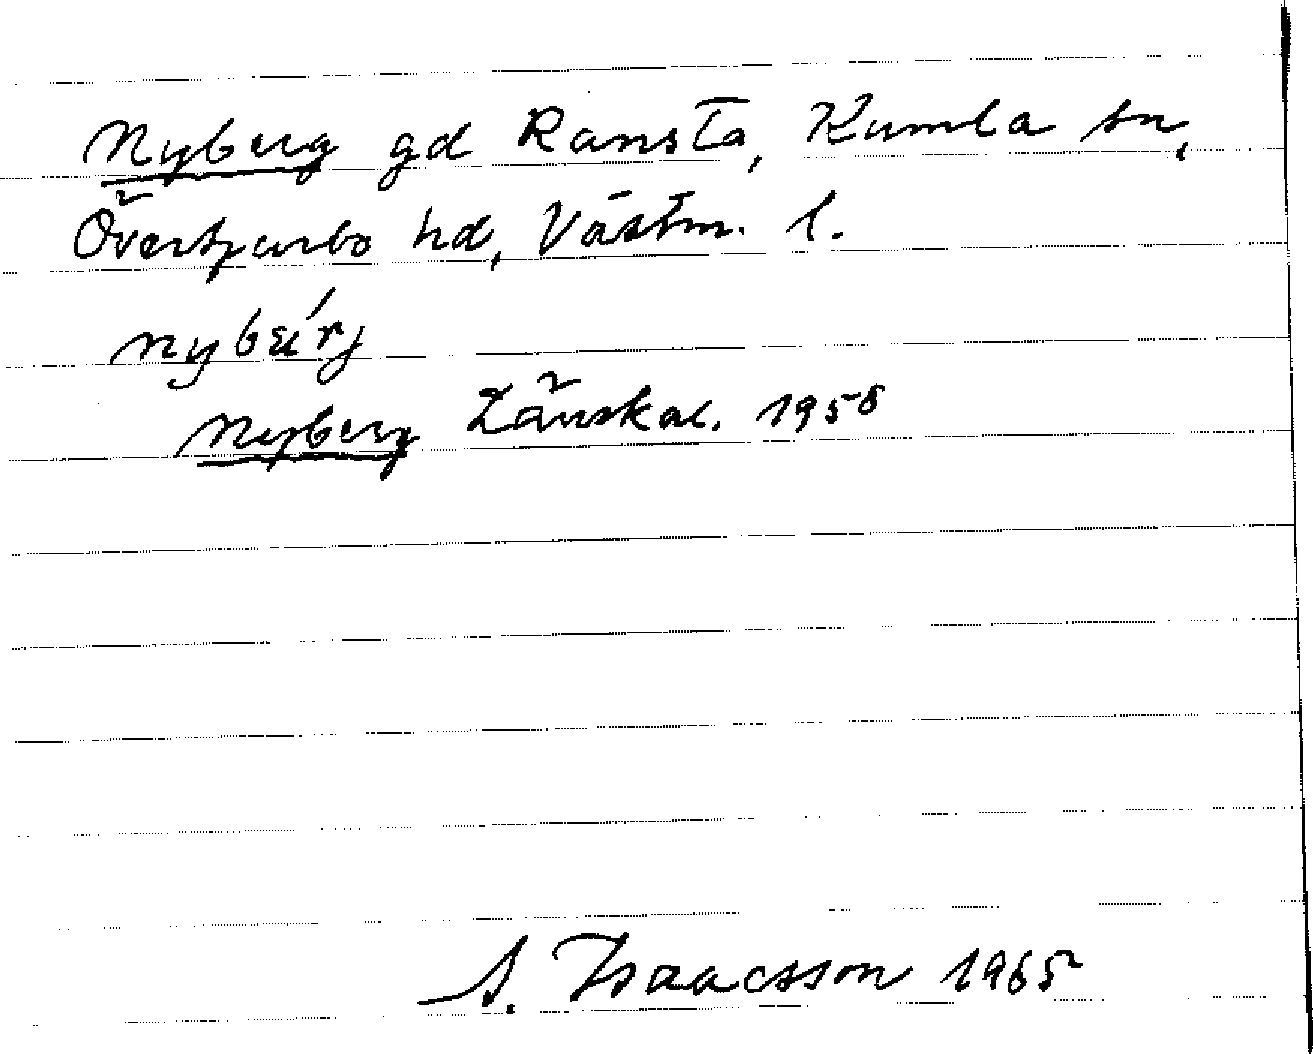 Nyberg gd Ransta, Kumla sn,
Övertjurbo hd, Västm. l.
nybär'j
Nyberg Länskal. 1958
A. Isaacsson 1965